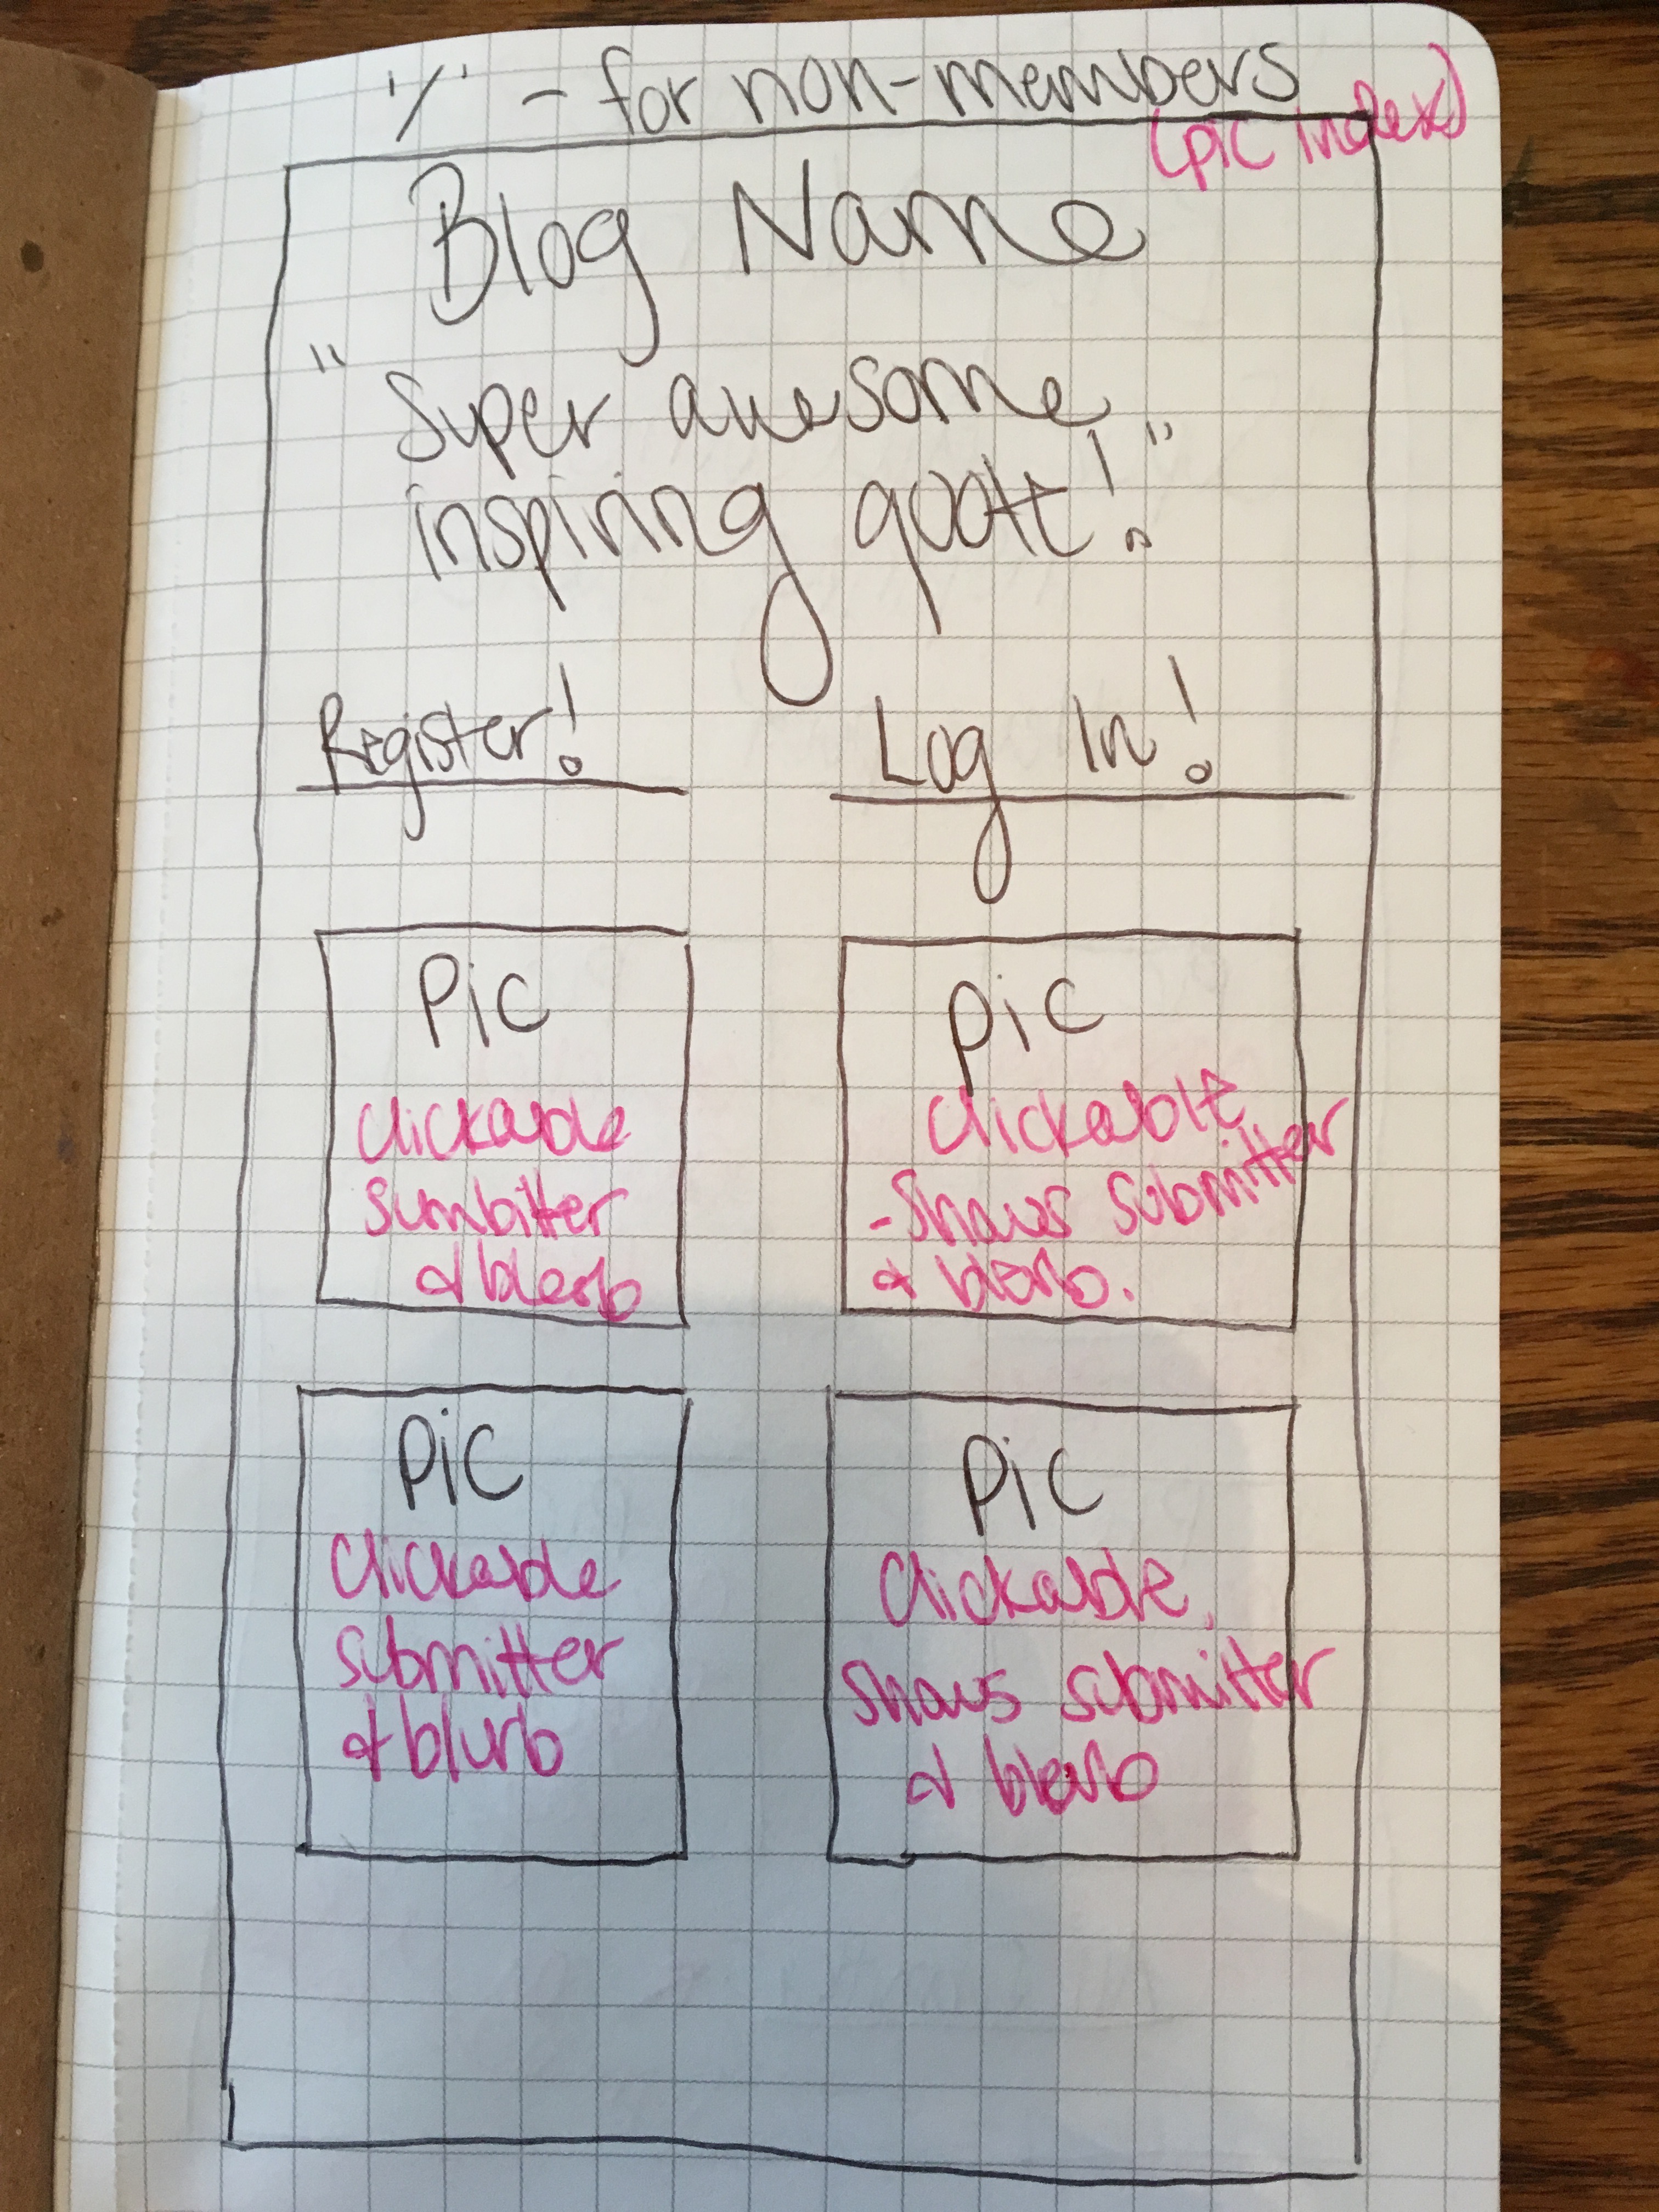 '/' - for non-members
(pic index)
Blog Name
"Super awesome
inspiring quote!"
Register! Log In!
Pic
clickable
sumbitter
& blerb
pic
clickable
- shows submitter
& blerb.
pic
clickable
submitter
& blurb
pic
clickable,
shows submitter
& blerb